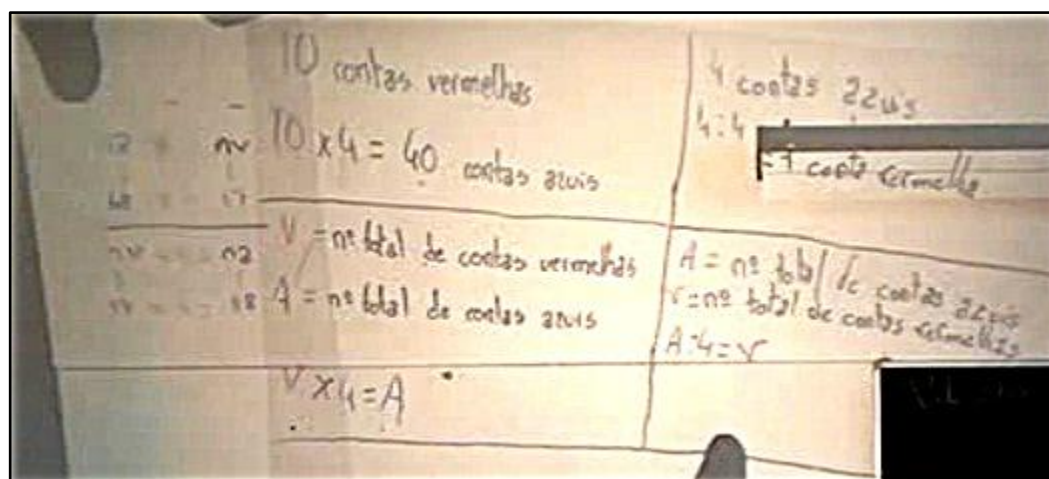 10 contas vermelhas
10 x 4 = 40 contas azuis
V = nº total de contas vermelhas
A = nº total de contas azuis
V x 4 = A
4 contas azuis
4 : 4
= 1 conta vermelha
A = nº total de contas azuis
V = nº total de contas vermelhas
A : 4 = V